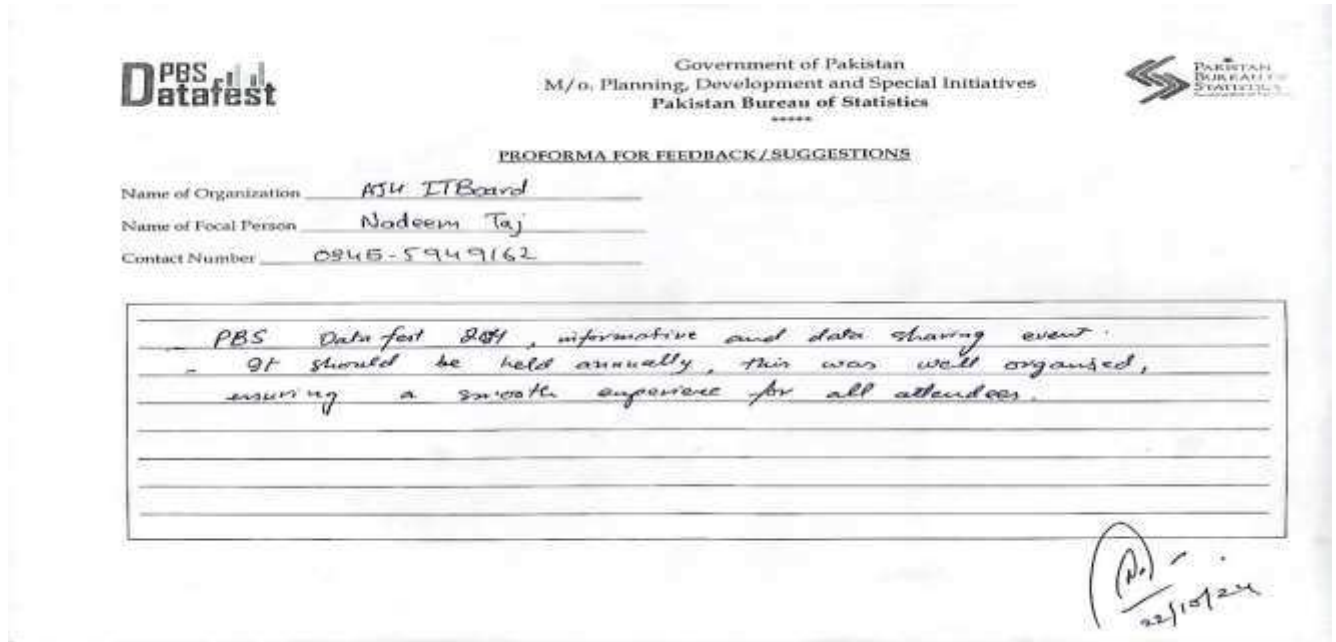 PBS
Datafest
Government of Pakistan
M/o. Planning, Development and Special Initiatives
Pakistan Bureau of Statistics
*****
PAKISTAN
BUREAU OF
STATISTICS
PROFORMA FOR FEEDBACK/SUGGESTIONS
Name of Organization AJK ITBoard
Name of Focal Person Nadeem Taj
Contact Number 0345-5949162
PBS Data fest , informative and data sharing event.
- It should be held annually, this was well organised,
ensuring a smooth experience for all attendees.
22/10/24